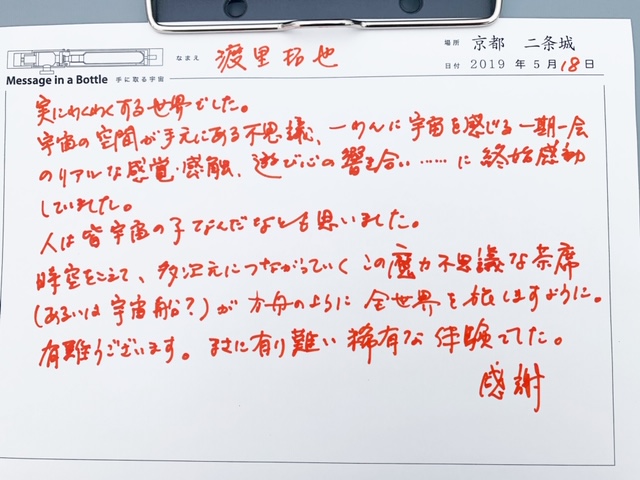 なまえ 渡里拓也
場所 京都 二条城
Message in a Bottle 手に取る宇宙
日付 2019 年 5 月 18 日
実にわくわくする世界でした。
宇宙の空間が手元にある不思議、一わんに宇宙を感じる一期一会
のリアルな感覚・感触、遊び心の響き合い……に終始感動
していました。
人は皆宇宙の子なんだなとも思いました。
時空をこえて、多次元につながっていくこの魔力不思議な茶席
(あるいは宇宙船?)が方舟のように全世界を旅しますように。
有難うございます。まさに有り難い稀有な体験でした。
感謝